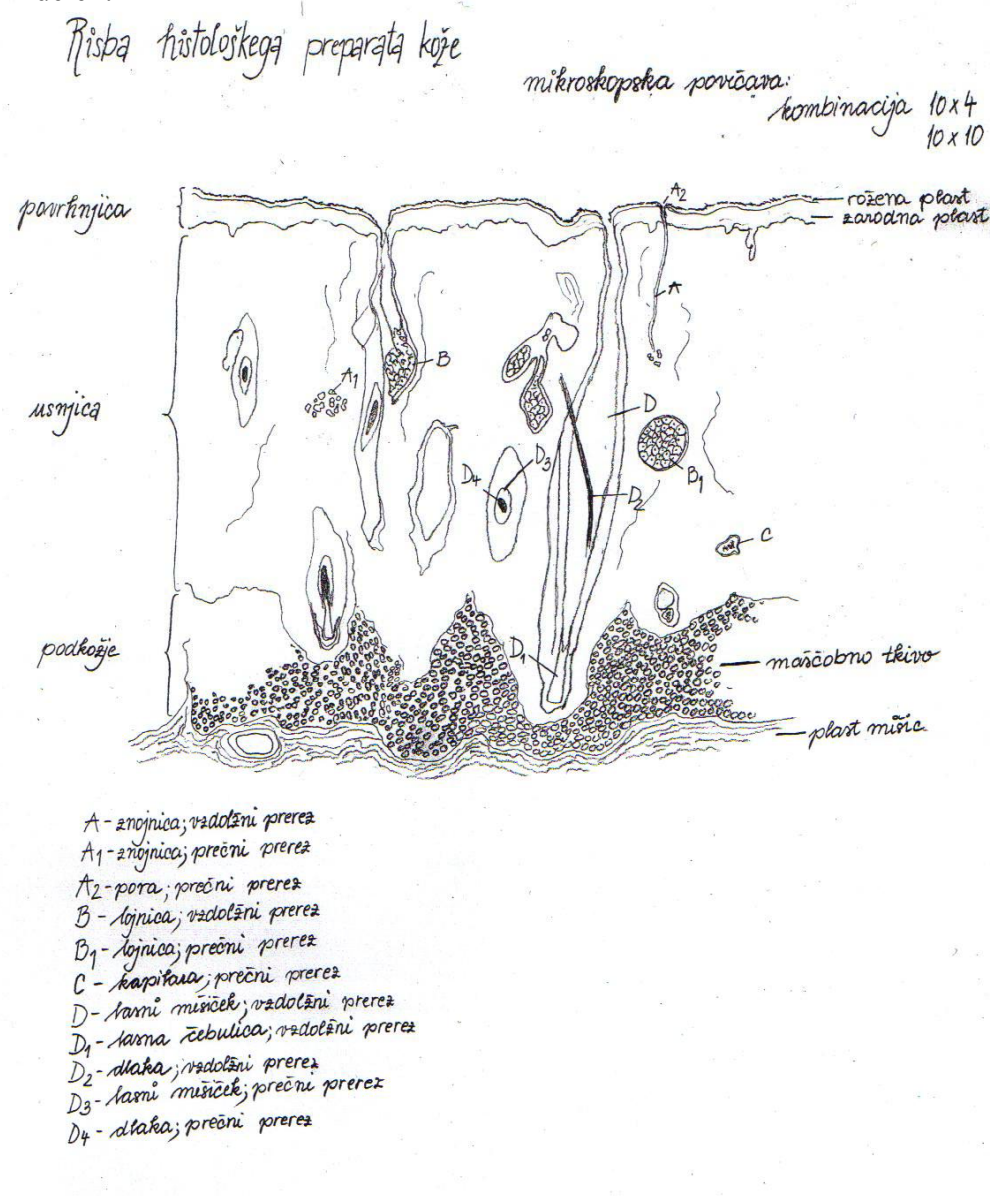 Risba histološkega preparata kože
mikroskopska povečava:
kombinacija 10x4
10x10
povrhnjica
A2
rožena plast
zarodna plast
A
B
A1
usnjica
D
D3
D4
B1
D2
C
podkožje
D1
maščobno tkivo
plast mišic
A - znojnica; vzdolžni prerez
A1 - znojnica; prečni prerez
A2 - pora; prečni prerez
B - lojnica; vzdolžni prerez
B1 - lojnica; prečni prerez
C - kapilara; prečni prerez
D - lasni mišiček; vzdolžni prerez
D1 - lasna čebulica; vzdolžni prerez
D2 - dlaka; vzdolžni prerez
D3 - lasni mešiček; prečni prerez
D4 - dlaka; prečni prerez